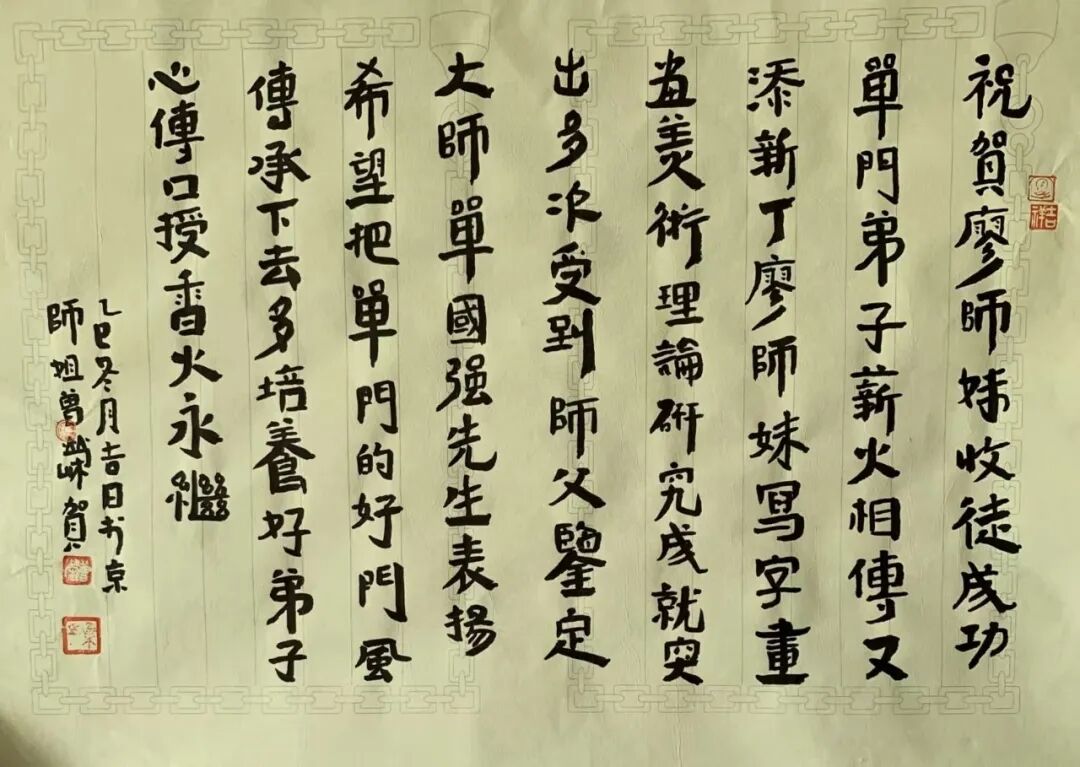 祝賀廖師妹收徒成功
單門弟子薪火相傳又
添新丁廖師妹寫字畫
畫美術理論研究成就突
出多次受到師父鑒定
大師單國强先生表揚
希望把單門的好門風
傳承下去多培養好弟子
心傳口授香火永繼
乙巳冬月吉日於京
師姐曾賀
吉祥